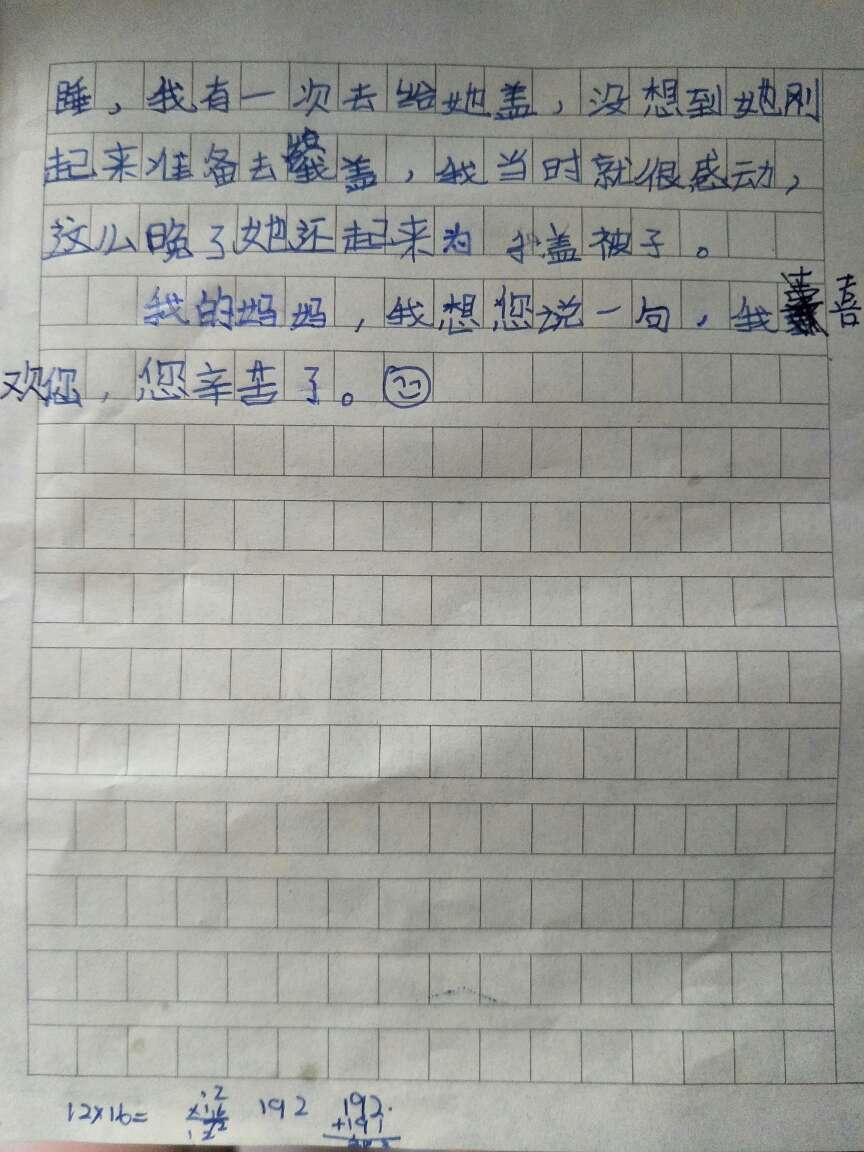 睡，我有一次去给她盖，没想到她刚
起来准备去给我盖，我当时就很感动，
这么晚了她还起来为我盖被子。
我的妈妈，我想您说一句，我喜
欢您，您辛苦了。
12×16= 192 192
+191